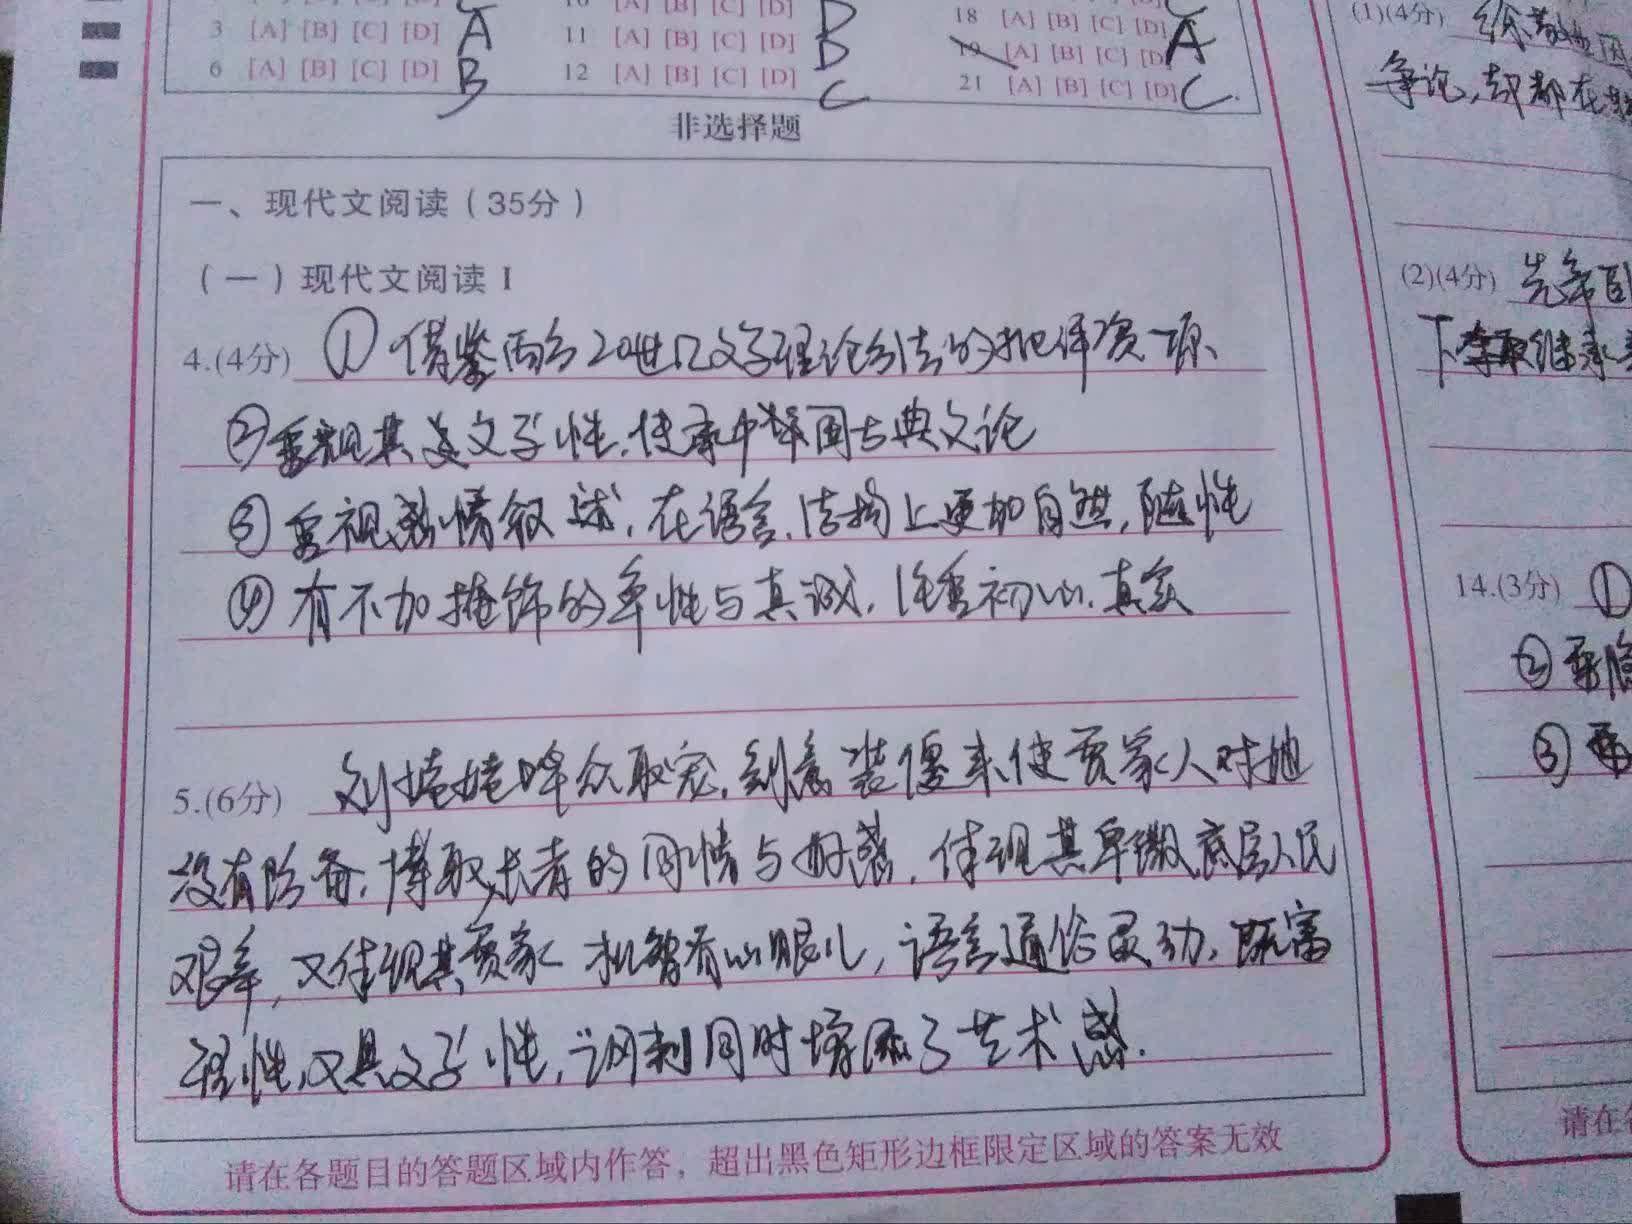 3 [A] [B] [C] [D] A
6 [A] [B] [C] [D] B
10 [A] [B] [C] [D] D
11 [A] [B] [C] [D] D
12 [A] [B] [C] [D] C
18 [A] [B] [C] [D]
19 [A] [B] [C] [D] A
21 [A] [B] [C] [D] C.
非选择题
一、现代文阅读(35分)
(一)现代文阅读 I
4.(4分) ①借鉴西方20世纪文学理论方法的批评资源
②重视其文学性,传承中华国古典文论
③重视感情叙述,在语言、结构上更加自然,随性
④有不加掩饰的率性与真诚,注重初心、真实
5.(6分) 刘姥姥哗众取宠,刻意装傻来使贾家人对她
没有防备,博取长者的同情与好感,体现其卑微底层人民
艰辛,又体现其贾家机智有心眼儿,语言通俗灵动,既富
理性,又具文学性,讽刺同时增添了艺术感.
请在各题目的答题区域内作答,超出黑色矩形边框限定区域的答案无效
(1)(4分)
争论,却都在
(2)(4分)
14.(3分) ①
②
③
请在